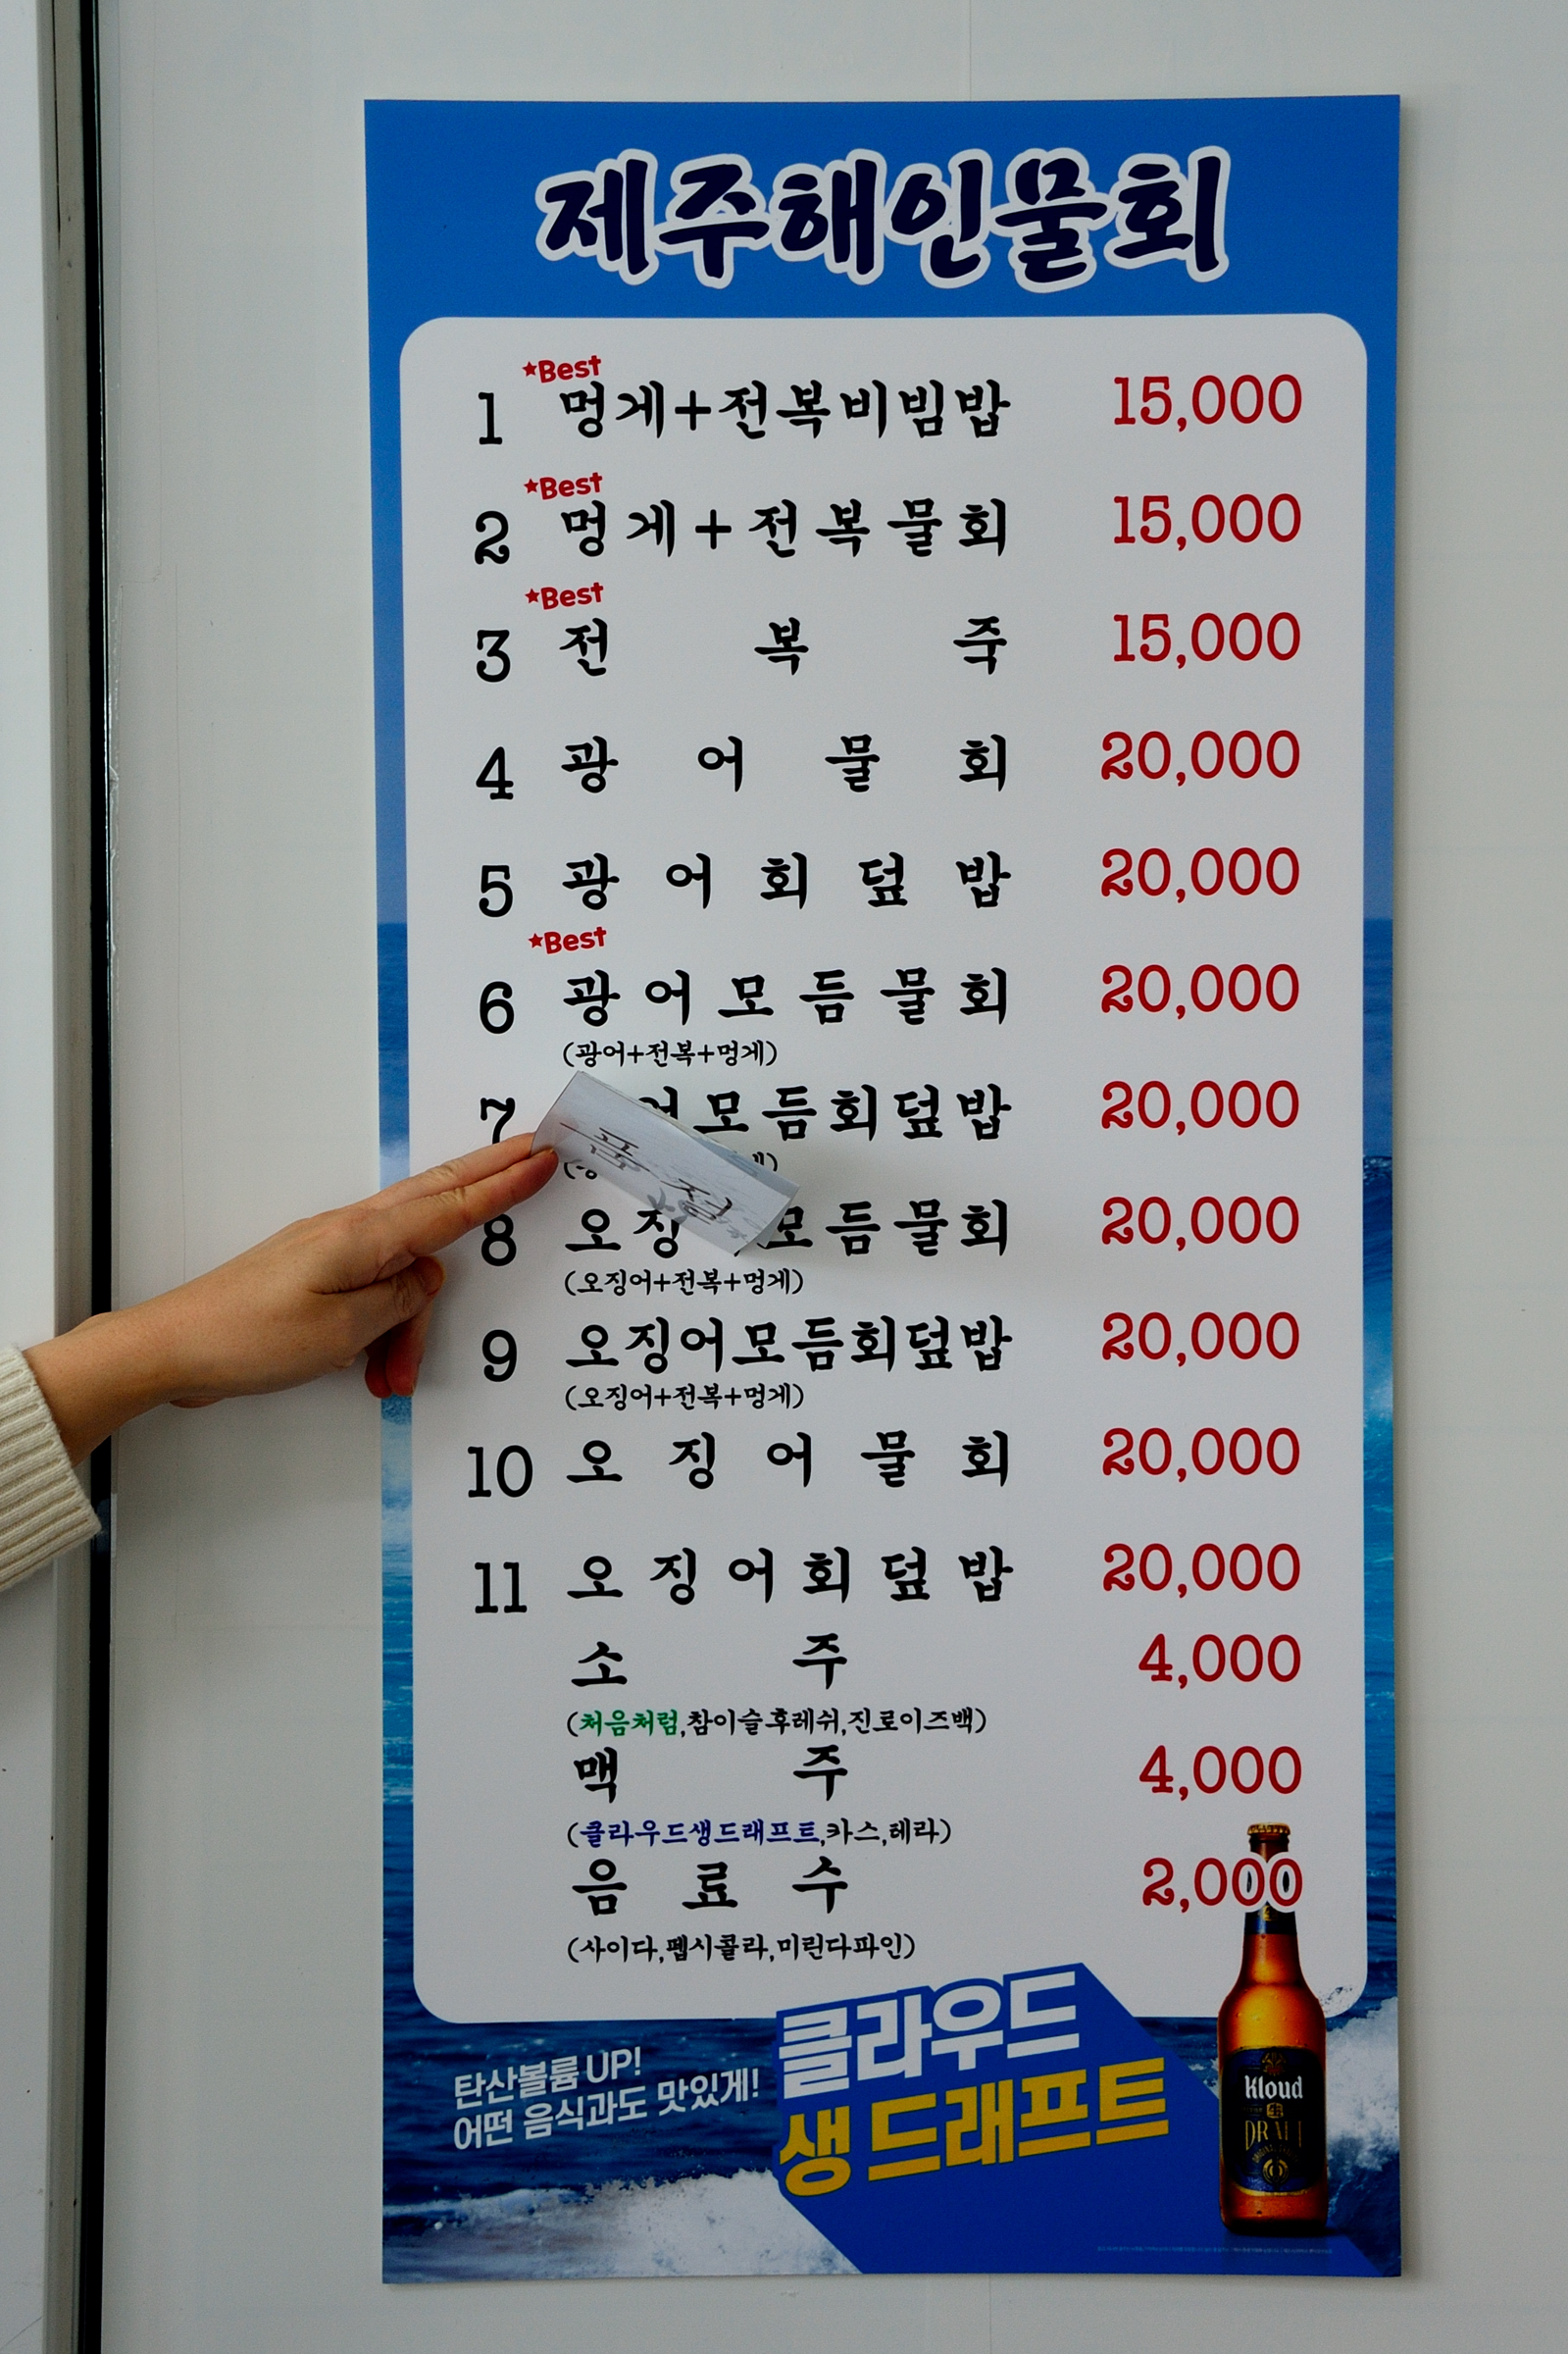 제주해인물회
★Best
1 멍게+전복비빔밥 15,000
★Best
2 멍게+전복물회 15,000
★Best
3 전복죽 15,000
4 광어물회 20,000
5 광어회덮밥 20,000
★Best
6 광어모듬물회 20,000
(광어+전복+멍게)
7 어모듬회덮밥 20,000
품절
8 오징 모듬물회 20,000
(오징어+전복+멍게)
9 오징어모듬회덮밥 20,000
(오징어+전복+멍게)
10 오징어물회 20,000
11 오징어회덮밥 20,000
소주 4,000
(처음처럼,참이슬후레쉬,진로이즈백)
맥주 4,000
(클라우드생드래프트,카스,테라)
음료수 2,000
(사이다,펩시콜라,미린다파인)
탄산볼륨 UP!
어떤 음식과도 맛있게!
클라우드
생 드래프트
Kloud
生
DRAFT